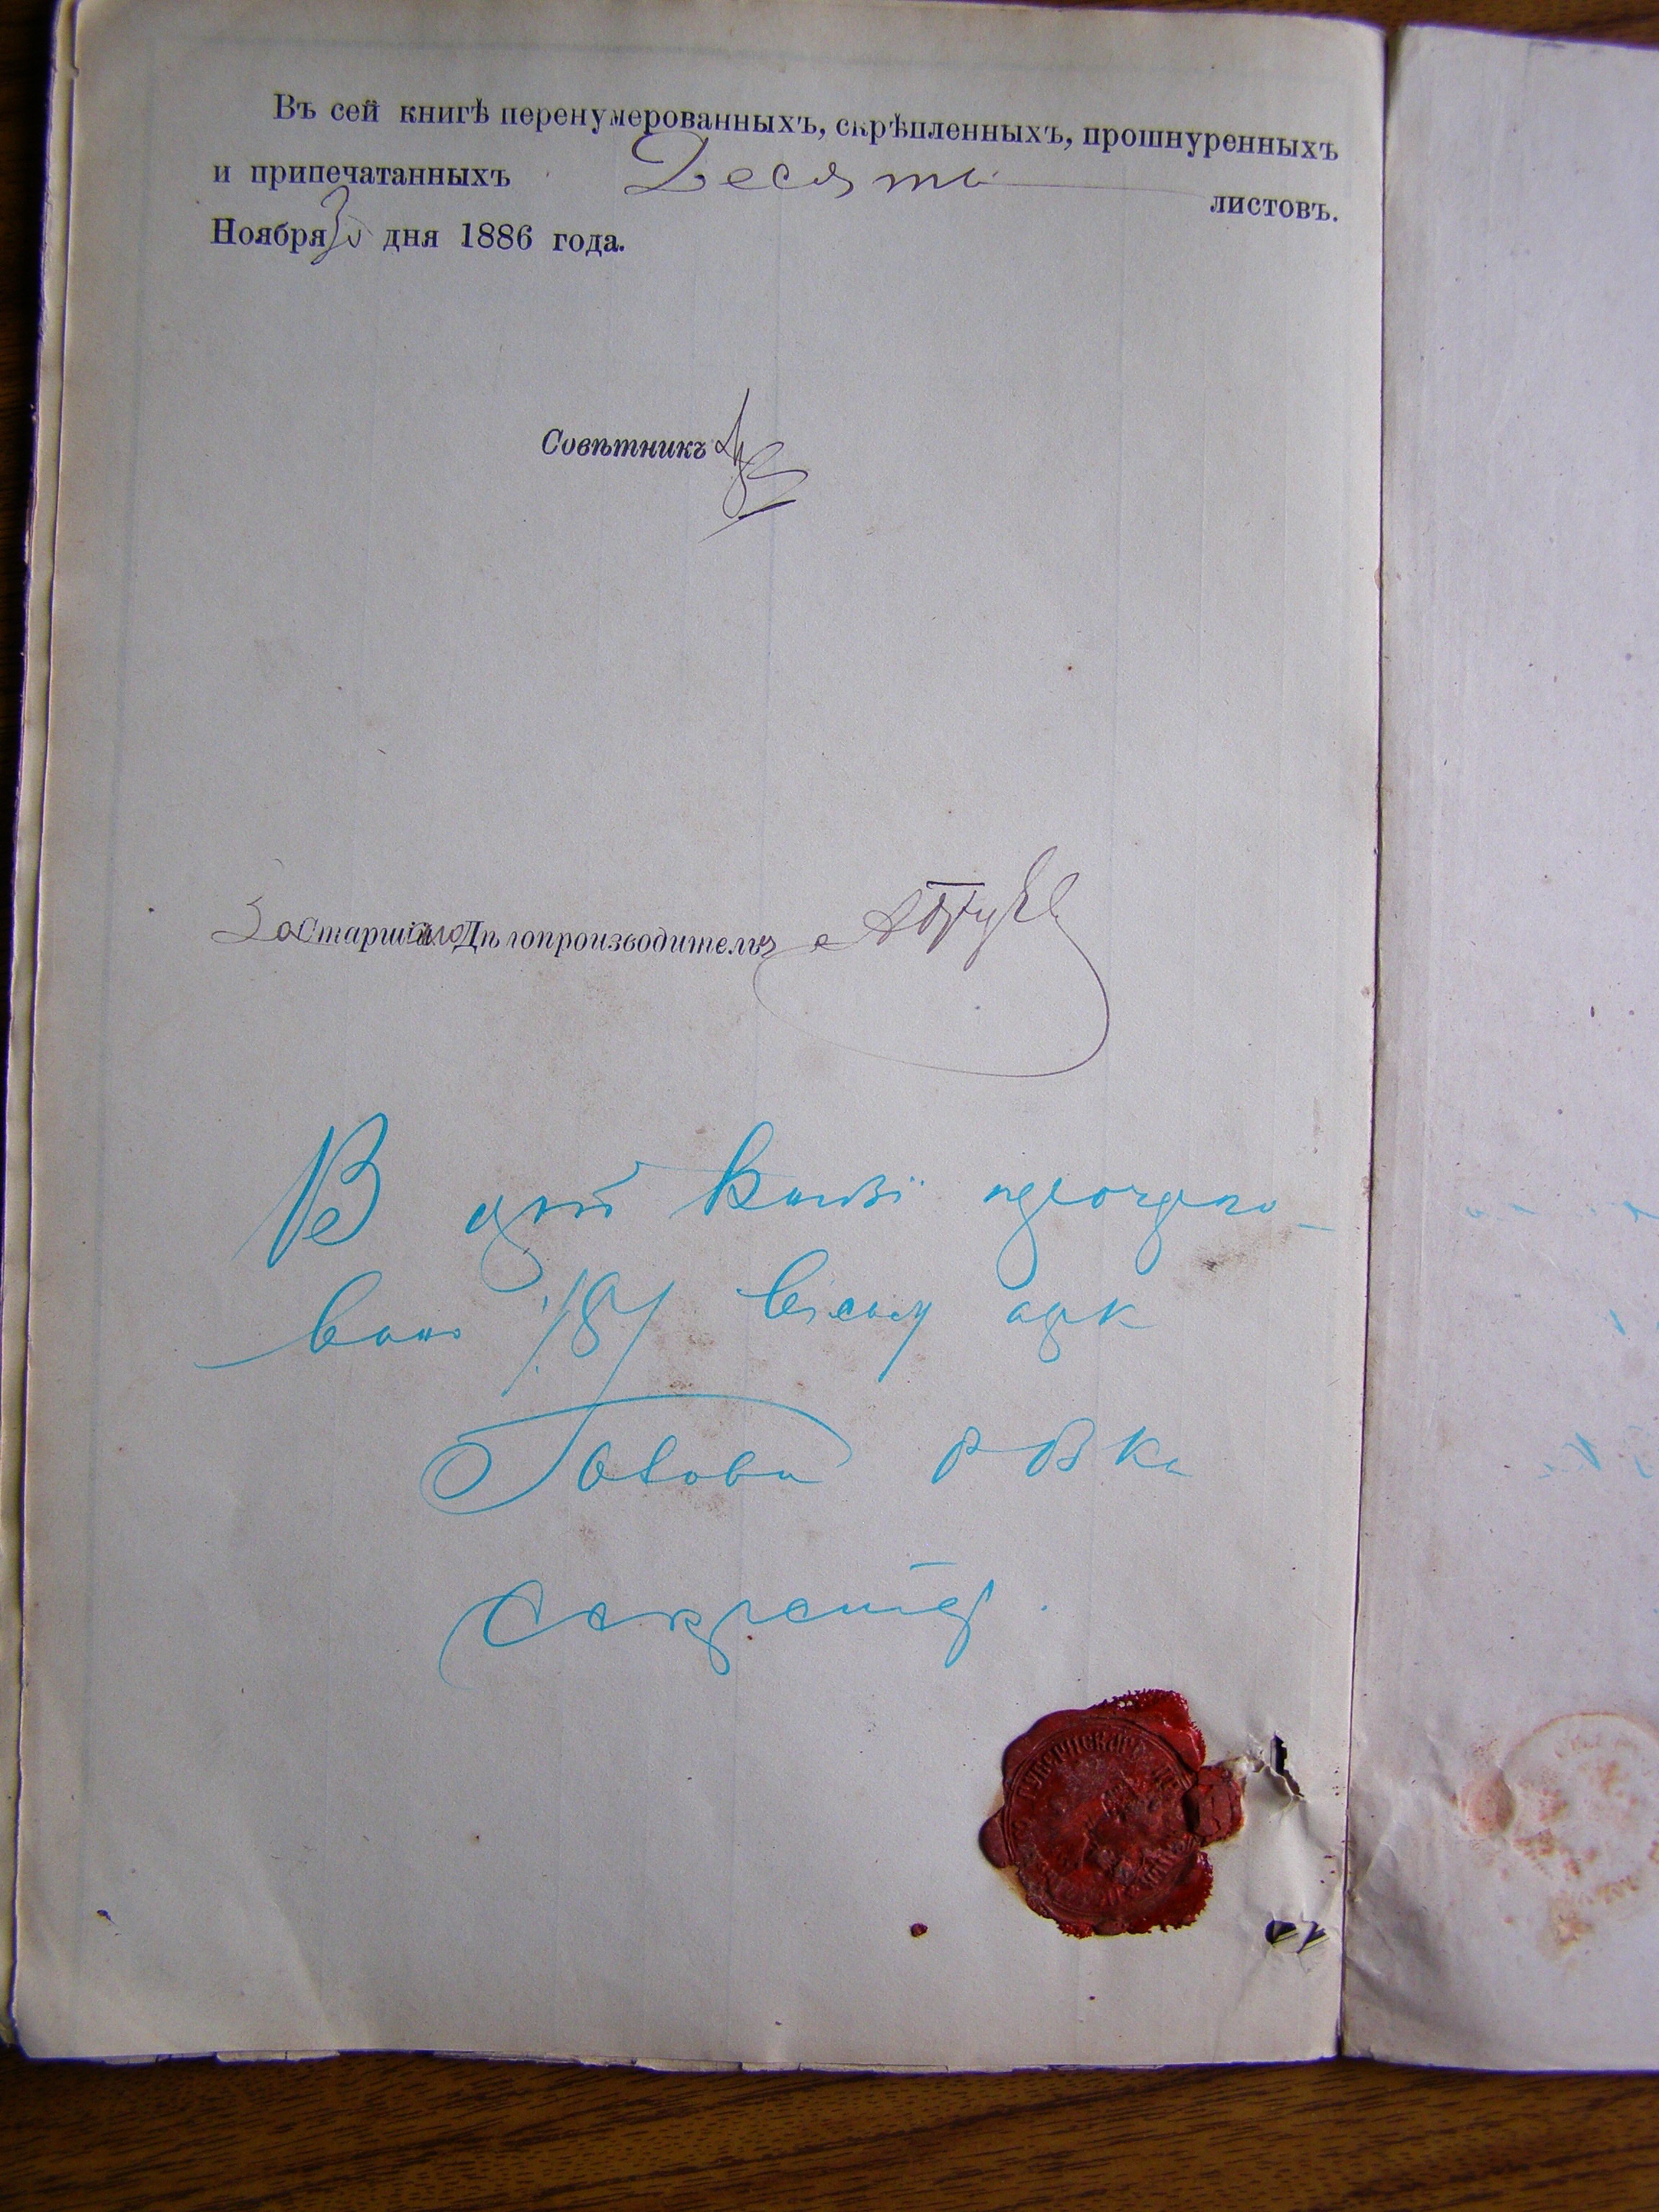 Въ сей книгѣ перенумерованныхъ, скрѣпленныхъ, прошнуренныхъ
и припечатанныхъ Десять листовъ.
Ноября 30 дня 1886 года.
Совѣтникъ
За Старшаго Дѣлопроизводителя
В цій книзі
вано /8/ вісім арк
Голова РВКа
Секретар